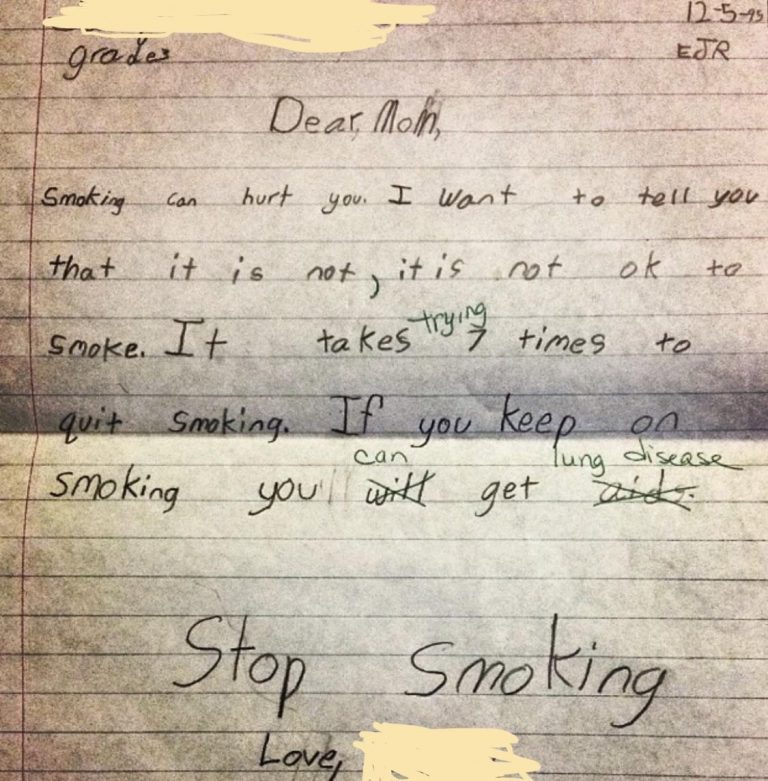 12-5-95
grades EJR
Dear, Mom,
Smoking can hurt you. I want to tell you
that it is not, it is not ok to
smoke. It takes trying 7 times to
quit smoking. If you keep on
can lung disease
smoking you will get aids.
Stop Smoking
Love,